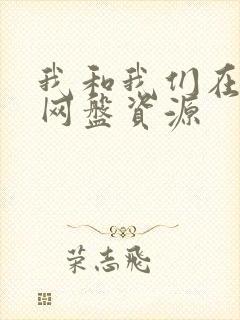 我和我们在
网盘资源
荣志飞